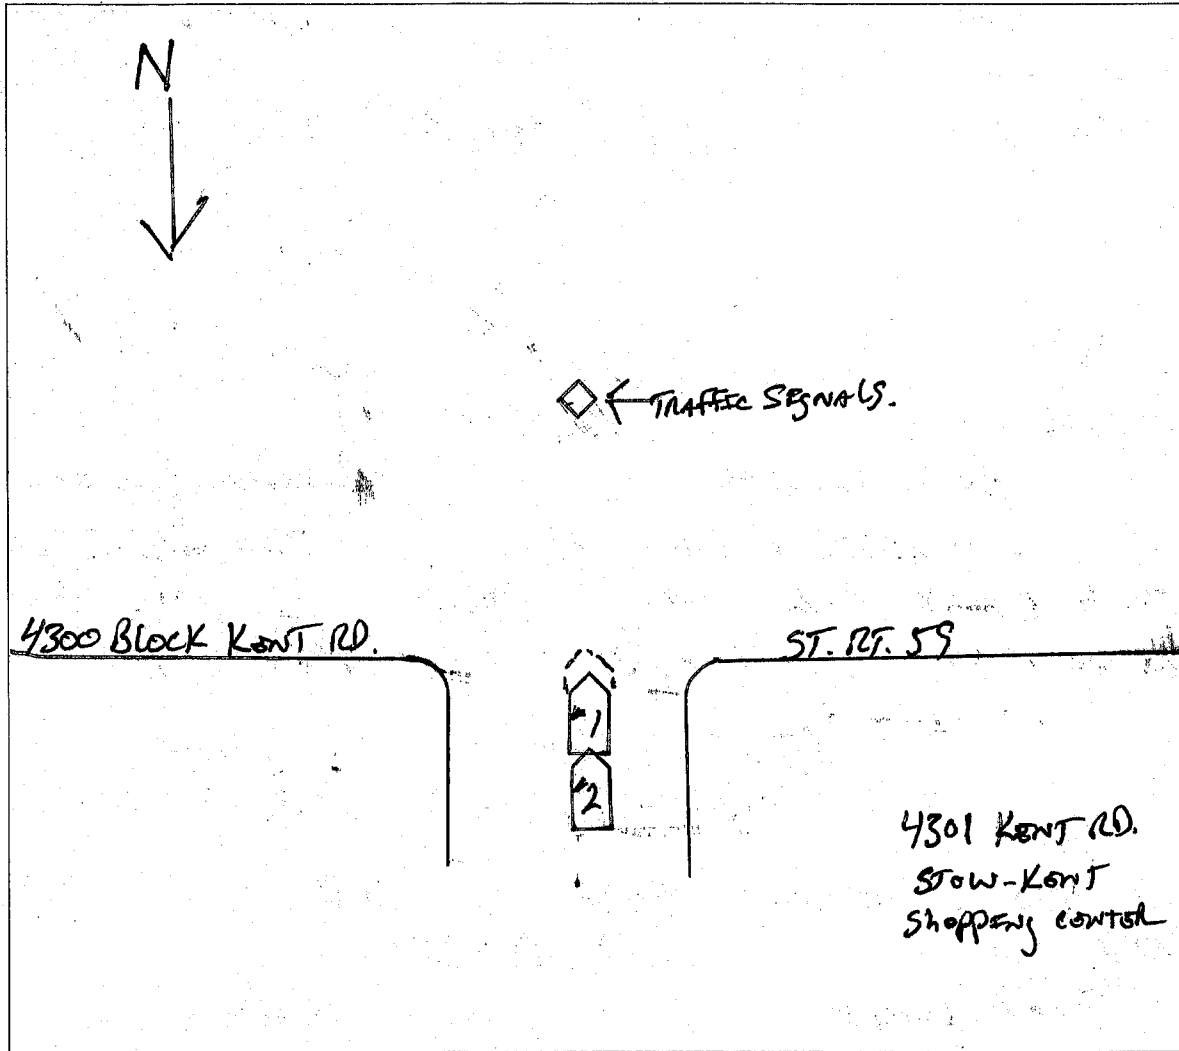 N
TRAFFIC SIGNALS.
4300 BLOCK KENT RD.
ST. RT. 59
#1
#2
4301 KENT RD.
STOW-KENT
SHOPPING CENTER